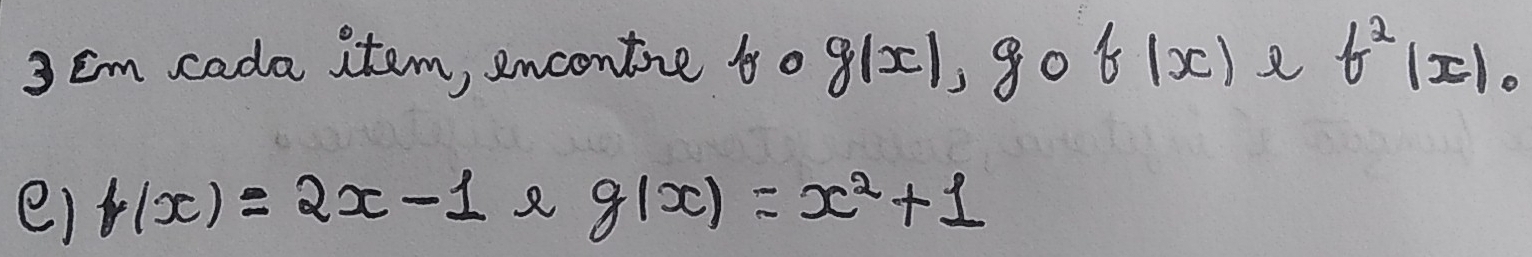 3 Em cada item, encontre f o g(x), g o f (x) e f²(x).
e) f(x) = 2x - 1 e g(x) = x² + 1